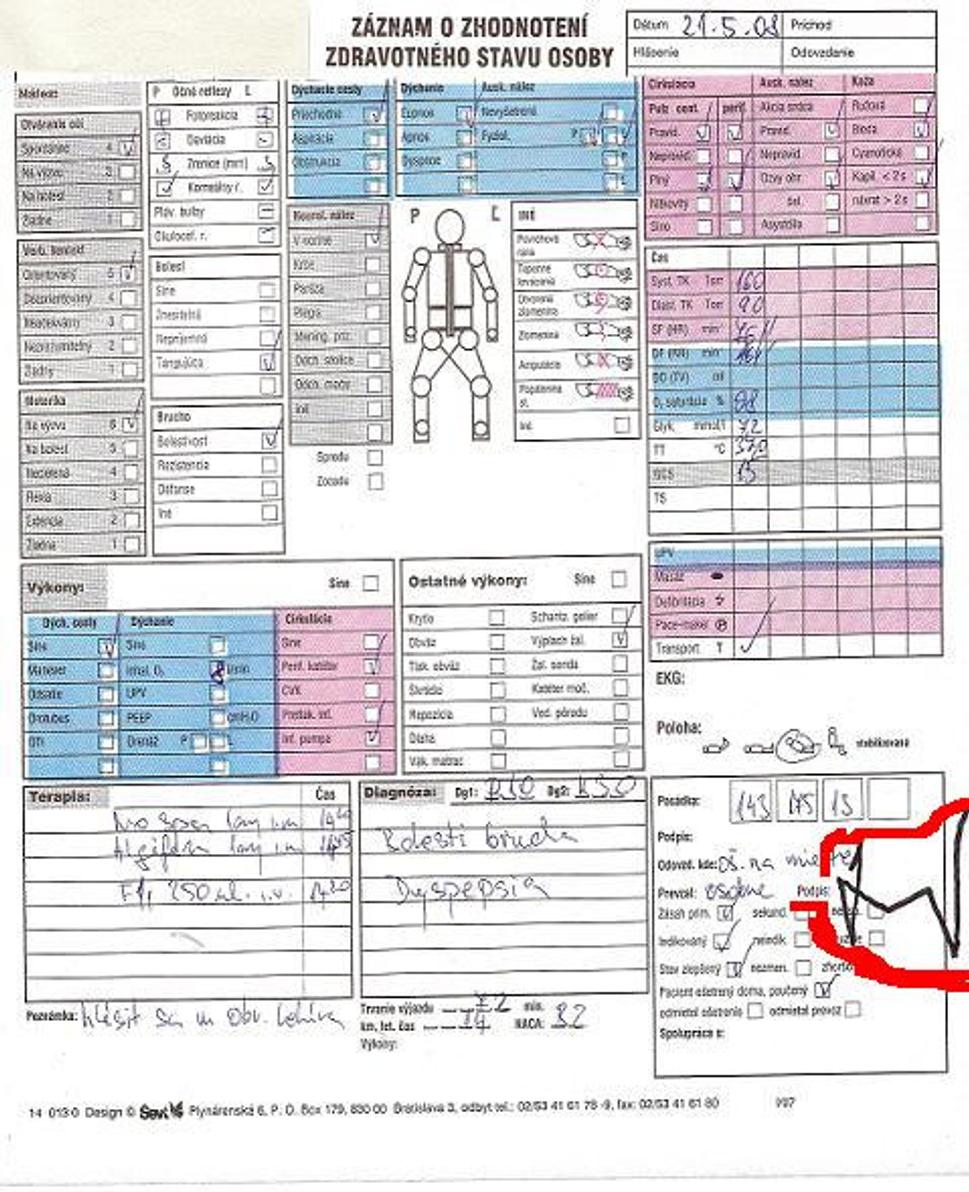 ZÁZNAM O ZHODNOTENÍ
ZDRAVOTNÉHO STAVU OSOBY
Dátum 21.5.08 Príchod
Hlásenie Odovzdanie
Otváranie očí
Spontánne 4
Na výzvu 3
Na bolesť 2
Žiadne 1
Verb. kontakt
Orientovaný 5
Dezorientovaný 4
Neadekvátny 3
Nezrozumiteľný 2
Žiadny 1
Motorika
Na výzvu 6
Na bolesť 5
Necielená 4
Flexia 3
Extenzia 2
Žiadna 1
P Očné reflexy L
Fotoreakcia
Deviácia
Zrenice (mm)
Korneálny r.
Pláv. bulby
Okulocef. r.
Bolesť
Sine
Znesiteľná
Nepríjemná
Trápiaca
Brucho
Bolestivosť
Rezistencia
Défense
Iné
Dýchacie cesty
Priechodné
Aspirácia
Obštrukcia
Dýchanie Ausk. nález
Eupnoe Nevyšetrené
Apnoe Fyziol. P
Dyspnoe
Neurol. nález
V norme
Kŕče
Paréza
Plégia
Mening. príz.
Odch. stolice
Odch. moču
Iné
Spredu
Zozadu
P Ľ
INÉ
Povrchová rana
Tupenné krvácanie
Otvorená zlomenina
Zlomenina
Amputácia
Popálenina st.
Iné
Cirkulácia Ausk. nález Koža
Pulz cent. perif. Akcia srdca Ružová
Pravid. Pravid. Bledá
Nepravid. Nepravid. Cyanotická
Plný Ozvy ohr. Kapil. < 2s
Nitkovitý návrat > 2s
Sine Asystólia
Čas
Syst. TK Torr 160
Diast. TK Torr 90
SF (HR) min
DF (RR) min
DO (TV) ml
O₂ saturácia % 98
Glyk. mmol/l 7,2
TT °C 37,0
GCS 15
TS
UPV
Masáž
Defibrilácia
Pace-maker P
Transport T
EKG:
Poloha: stabilizovaná
Výkony: Sine
Dých. cesty Dýchanie Cirkulácia
Sine Sine Sine
Manéver Inhal. O₂ l/min Perif. katéter
Odsatie UPV CVK
Orotubus PEEP cmH₂O Pretlak. inf.
OTI Drenáž P L Inf. pumpa
Ostatné výkony: Sine
Krytie Schantz. golier
Obväz Výplach žal.
Tlak. obväz Žal. sonda
Škrtidlo Katéter moč.
Repozícia Ved. pôrodu
Dlaha
Vák. matrac
Terapia: Čas
No spa 1 amp i.m
Algifen 1 amp i.m
F1/1 250 ml i.v.
Poznámka: hlásiť sa u obv. lekára
Diagnóza: Dg1: R10 Dg2: K30
Bolesti brucha
Dyspepsia
Trvanie výjazdu min.
km, let. čas 14 NACA:
Výkony:
Posádka: 143 175 13
Podpis:
Odovzd. kde: oš. na mieste
Prevzal: osobne Podpis:
Zásah prim. sekund.
Indikovaný neindik.
Stav zlepšený nezmen.
Pacient ošetrený doma, poučený
odmietol ošetrenie odmietol prevoz
Spolupráca s:
14 013 0 Design © Ševt Plynárenská 6, P. O. Box 179, 830 00 Bratislava 3, odbyt tel.: 02/53 41 61 78 -9, fax: 02/53 41 61 80